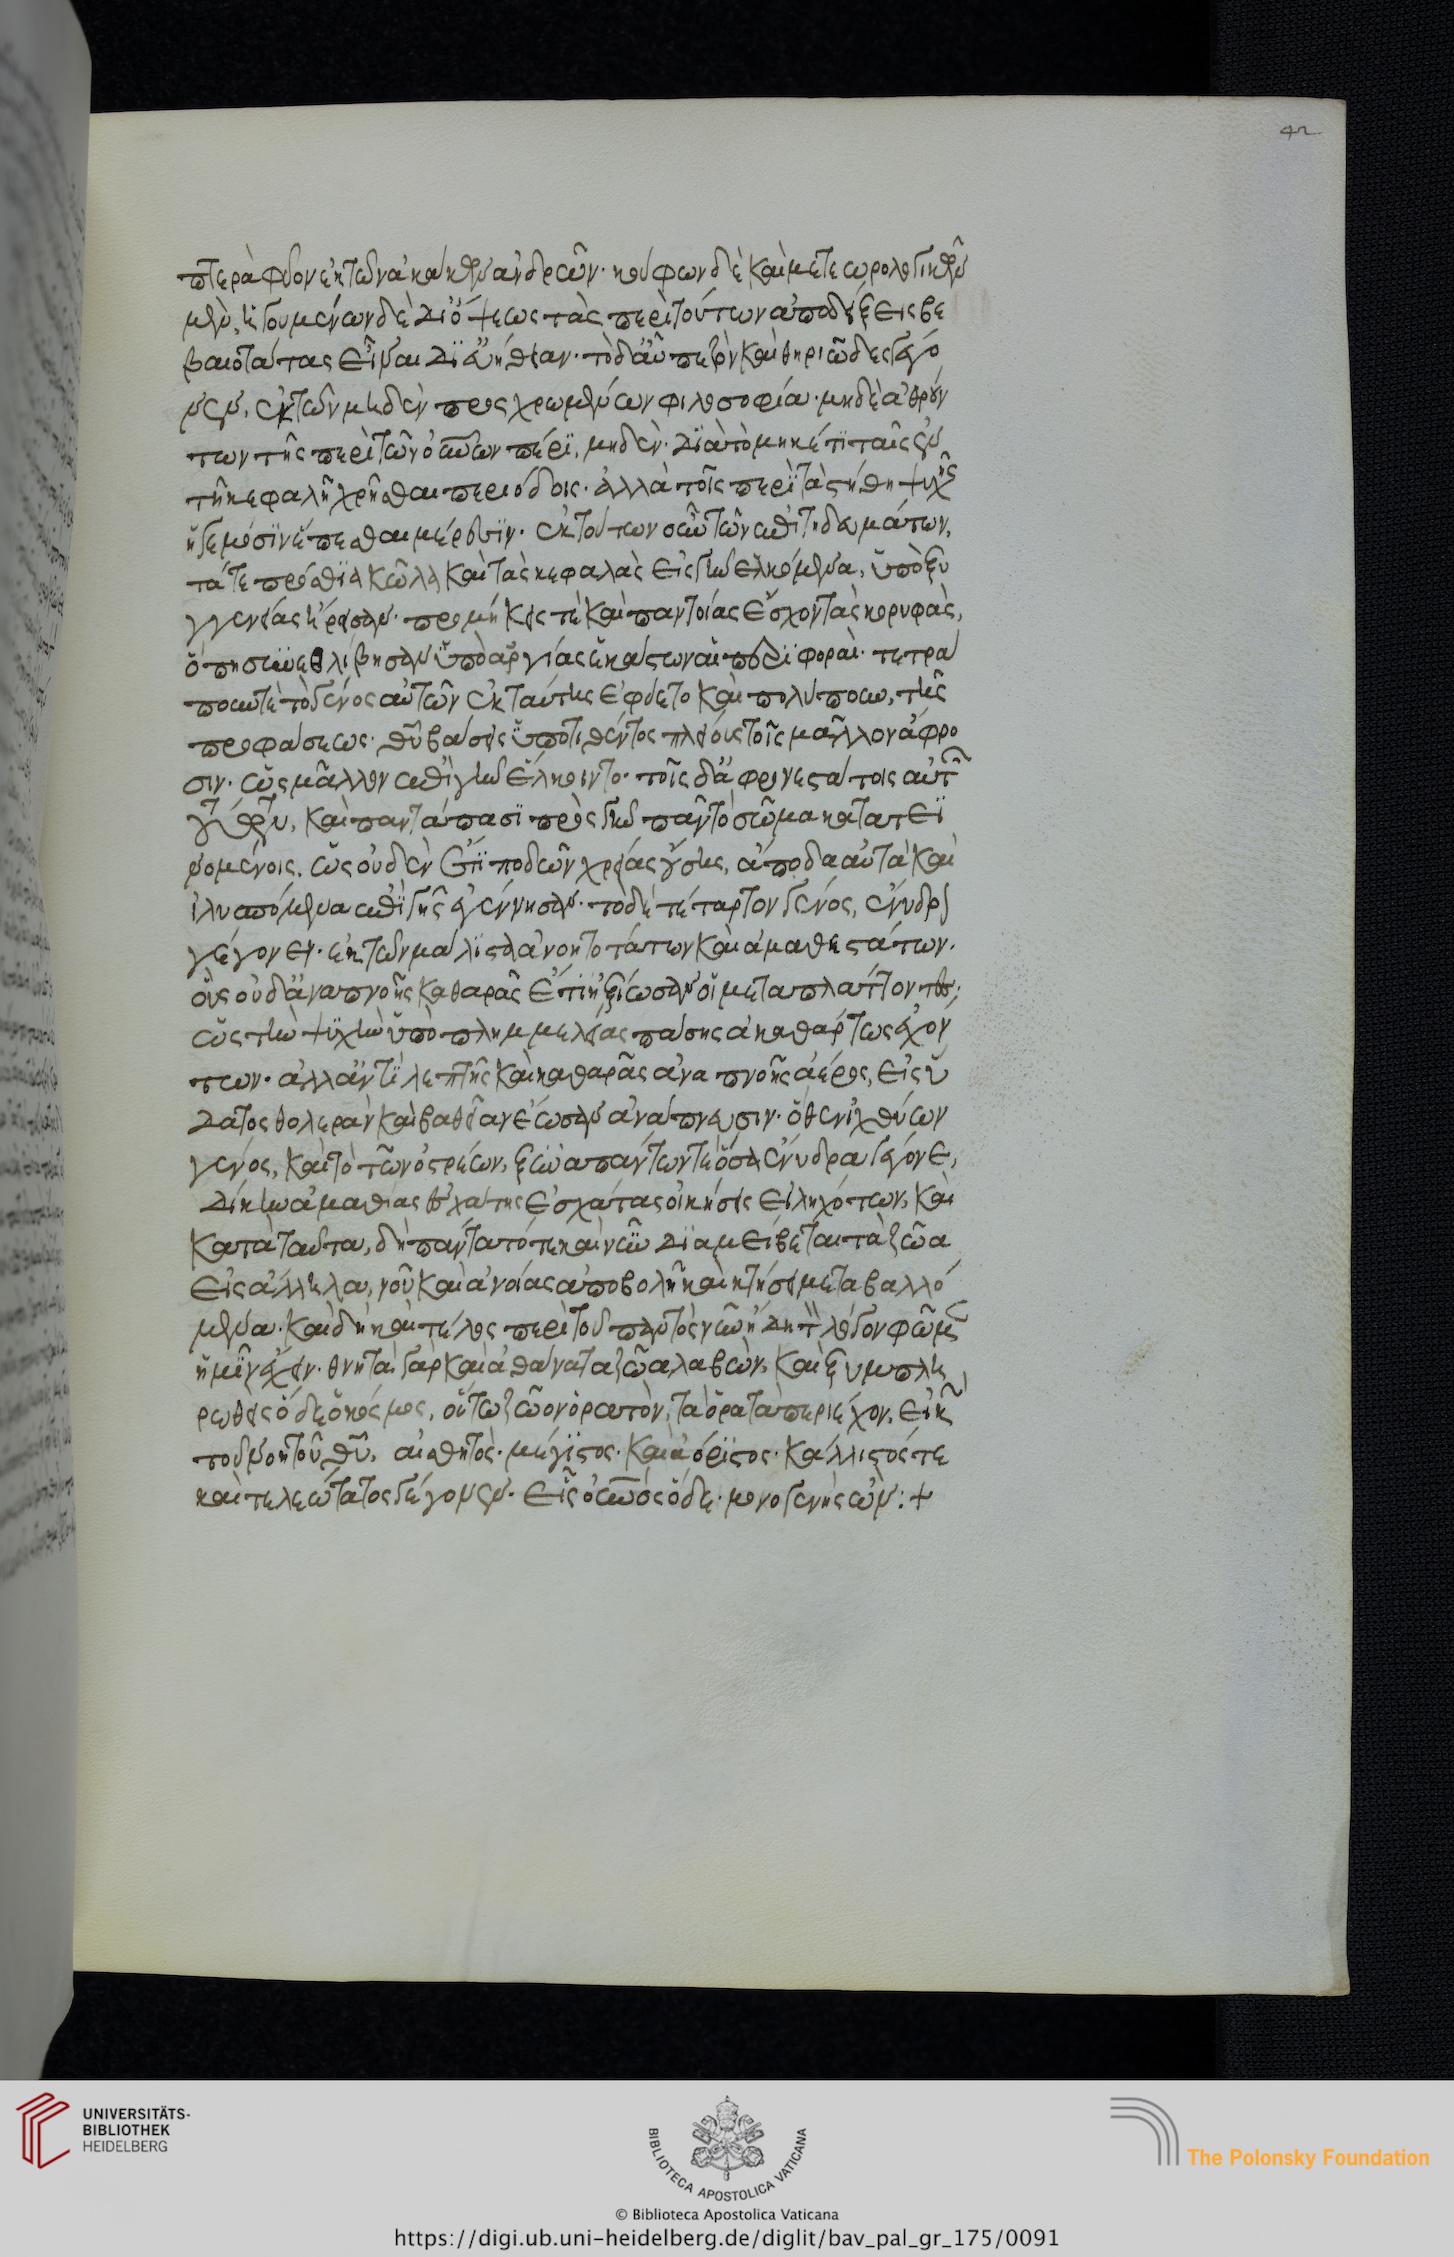 πτερὰ φύον ἐκ τῶν ἀκάκων ἀνδρῶν· κούφων δὲ καὶ μετεωρολογικῶν
μὲν, ἡγουμένων δὲ δι' ὄψεως τὰς περὶ τούτων ἀποδείξεις βε
βαιοτάτας εἶναι δι' εὐήθειαν· τὸ δ' αὖ πεζὸν καὶ θηριῶδες γέγο
νεν, ἐκ τῶν μηδὲν προσχρωμένων φιλοσοφία· μηδὲ ἀθρούν
των τῆς περὶ τῶν οὐρανὸν πέρι, μηδὲν· διὰ τὸ μηκέτι ταῖς ἐν
τῆ κεφαλῆ χρῆσθαι περιόδοις· ἀλλὰ τοῖς περὶ τὰ στήθη ψυχῆς
ἡγεμόσιν ἕπεσθαι μέρεσιν· ἐκ τούτων οὖν τῶν ἐπιτηδευμάτων,
τά τε πρόσθια κῶλα καὶ τὰς κεφαλὰς εἰς γῆν ἑλκόμενα, ὑπὸ ξυ
γγενείας ἤρεισαν· προμήκεις τὲ καὶ παντοίας ἔσχον τὰς κορυφὰς,
ὅπη συνεθλίβησαν ὑπὸ ἀργίας ἑκάστων αἱ περιφοραί· τετρά
πουν τὲ τὸ γένος αὐτῶν ἐκ ταύτης ἐφύετο καὶ πολύπουν, τῆς
προφάσεως· θυ βάσεις ὑποτιθέντος πλείους τοῖς μᾶλλον ἄφρο
σιν· ὡς μᾶλλον ἐπὶ γῆν ἕλκοιντο· τοῖς δ' ἀφρονεστάτοις αὐτῶν
τούτων, καὶ παντάπασι πρὸς γῆν πᾶν τὸ σῶμα κατατει
νομένοις. ὡς οὐδὲν ἔτι ποδῶν χρείας οὔσης, ἄποδα αὐτὰ καὶ
ἰλυσπόμενα ἐπὶ γῆς ἐγέννησαν· τὸ δὲ τέταρτον γένος, ἔνυδρον
γέγονεν· ἐκ τῶν μάλιστα ἀνοητοτάτων καὶ ἀμαθεστάτων·
οὓς οὐδ' ἀναπνοῆς καθαρᾶς ἔτι ἠξίωσαν οἱ μεταπλάττοντες·
ὡς τὴν ψυχὴν ὑπὸ πλημμελείας πάσης ἀκαθάρτως ἐχόν
των· ἀλλ' ἀντὶ λεπτῆς καὶ καθαρᾶς ἀναπνοῆς ἀέρος, εἰς ὕ
δατος θολερὰν καὶ βαθεῖαν ἔωσαν ἀνάπνευσιν· ὅθεν ἰχθύων
γένος, καὶ τὸ τῶν ὀστρέων, ξυναπάντων τὲ ὅσα ἔνυδρα γέγονε,
δίκην ἀμαθίας ἐσχάτης ἐσχάτας οἰκήσεις εἰληχότων, καὶ
κατὰ ταῦτα, δὴ πάντα τότε καὶ νῦν διαμείβεται τὰ ζῶα
εἰς ἄλληλα, νοῦ καὶ ἀνοίας ἀποβολῆ καὶ κτήσει μεταβαλλό
μενα· καὶ δὴ καὶ τέλος περὶ τοῦ παντὸς νῦν ἤδη τὸν λόγον φῶμεν
ἡμῖν ἔχειν· θνητὰ γὰρ καὶ ἀθάνατα ζῶα λαβὼν, καὶ ξυμπλη
ρωθεὶς ὅδε ὁ κόσμος, οὕτω ζῶον ὁρατὸν, τὰ ὁρατὰ περιέχον, εἰκὼν
τοῦ νοητοῦ θυ, αἰσθητὸς· μέγιστος· καὶ ἄριστος· κάλλιστός τε
καὶ τελεώτατος γέγονεν· εἷς οὐνος ὅδε· μονογενὴς ὤν: +
UNIVERSITÄTS-
BIBLIOTHEK
HEIDELBERG
BIBLIOTECA APOSTOLICA VATICANA
The Polonsky Foundation
© Biblioteca Apostolica Vaticana
https://digi.ub.uni-heidelberg.de/diglit/bav_pal_gr_175/0091